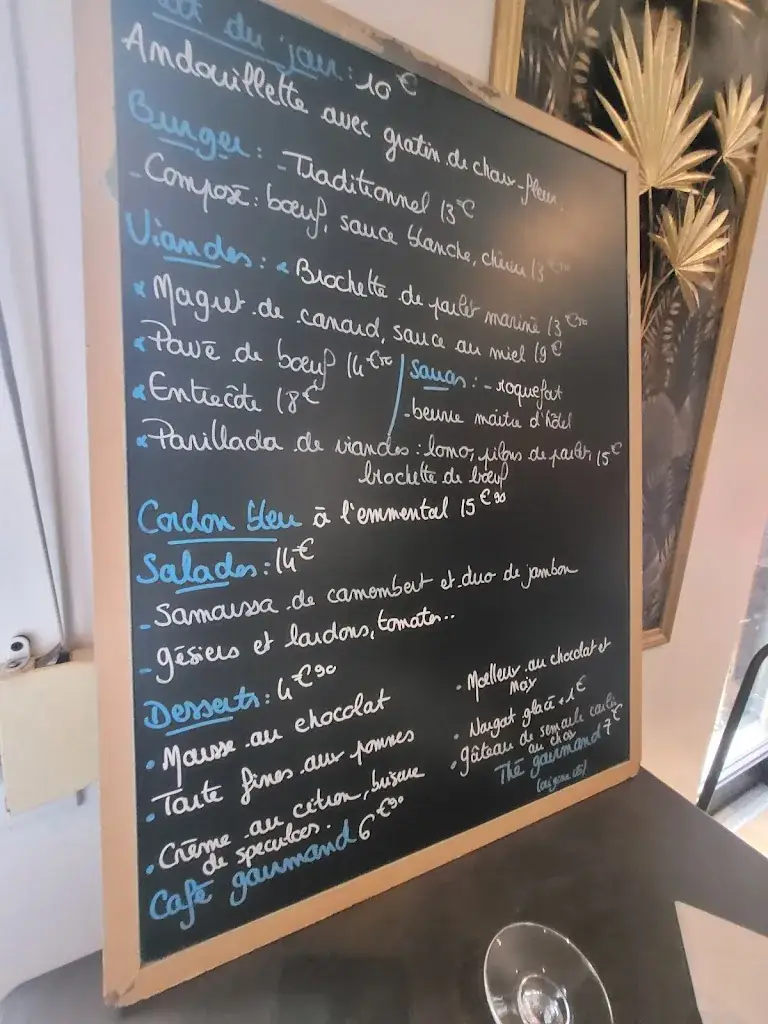 du jour : 10€
Andouillette avec gratin de chou-fleur.
Burger : - Traditionnel 13€
- Composé : bœuf, sauce blanche, chèvre 13€90
Viandes : * Brochette de poulet mariné 13€90
* Magret de canard, sauce au miel 19€
* Pavé de bœuf 14€90
sauces : - roquefort
* Entrecôte 18€
- beurre maître d'hôtel
* Parillada de viandes : lomo, pilons de poulet, 15€
brochette de bœuf
Cordon bleu à l'emmental 15€90
Salades : 14€
- Samoussa de camembert et duo de jambon
- gésiers et lardons, tomates..
Desserts : 4€90
• Mousse au chocolat
• Tarte fines aux pommes
• Crème au citron, brisure
de speculoos.
Café gourmand 6€90
• Moelleux au chocolat et
noix
• Nougat glacé +1€
• gâteau de semoule
au choco
Thé gourmand 7€